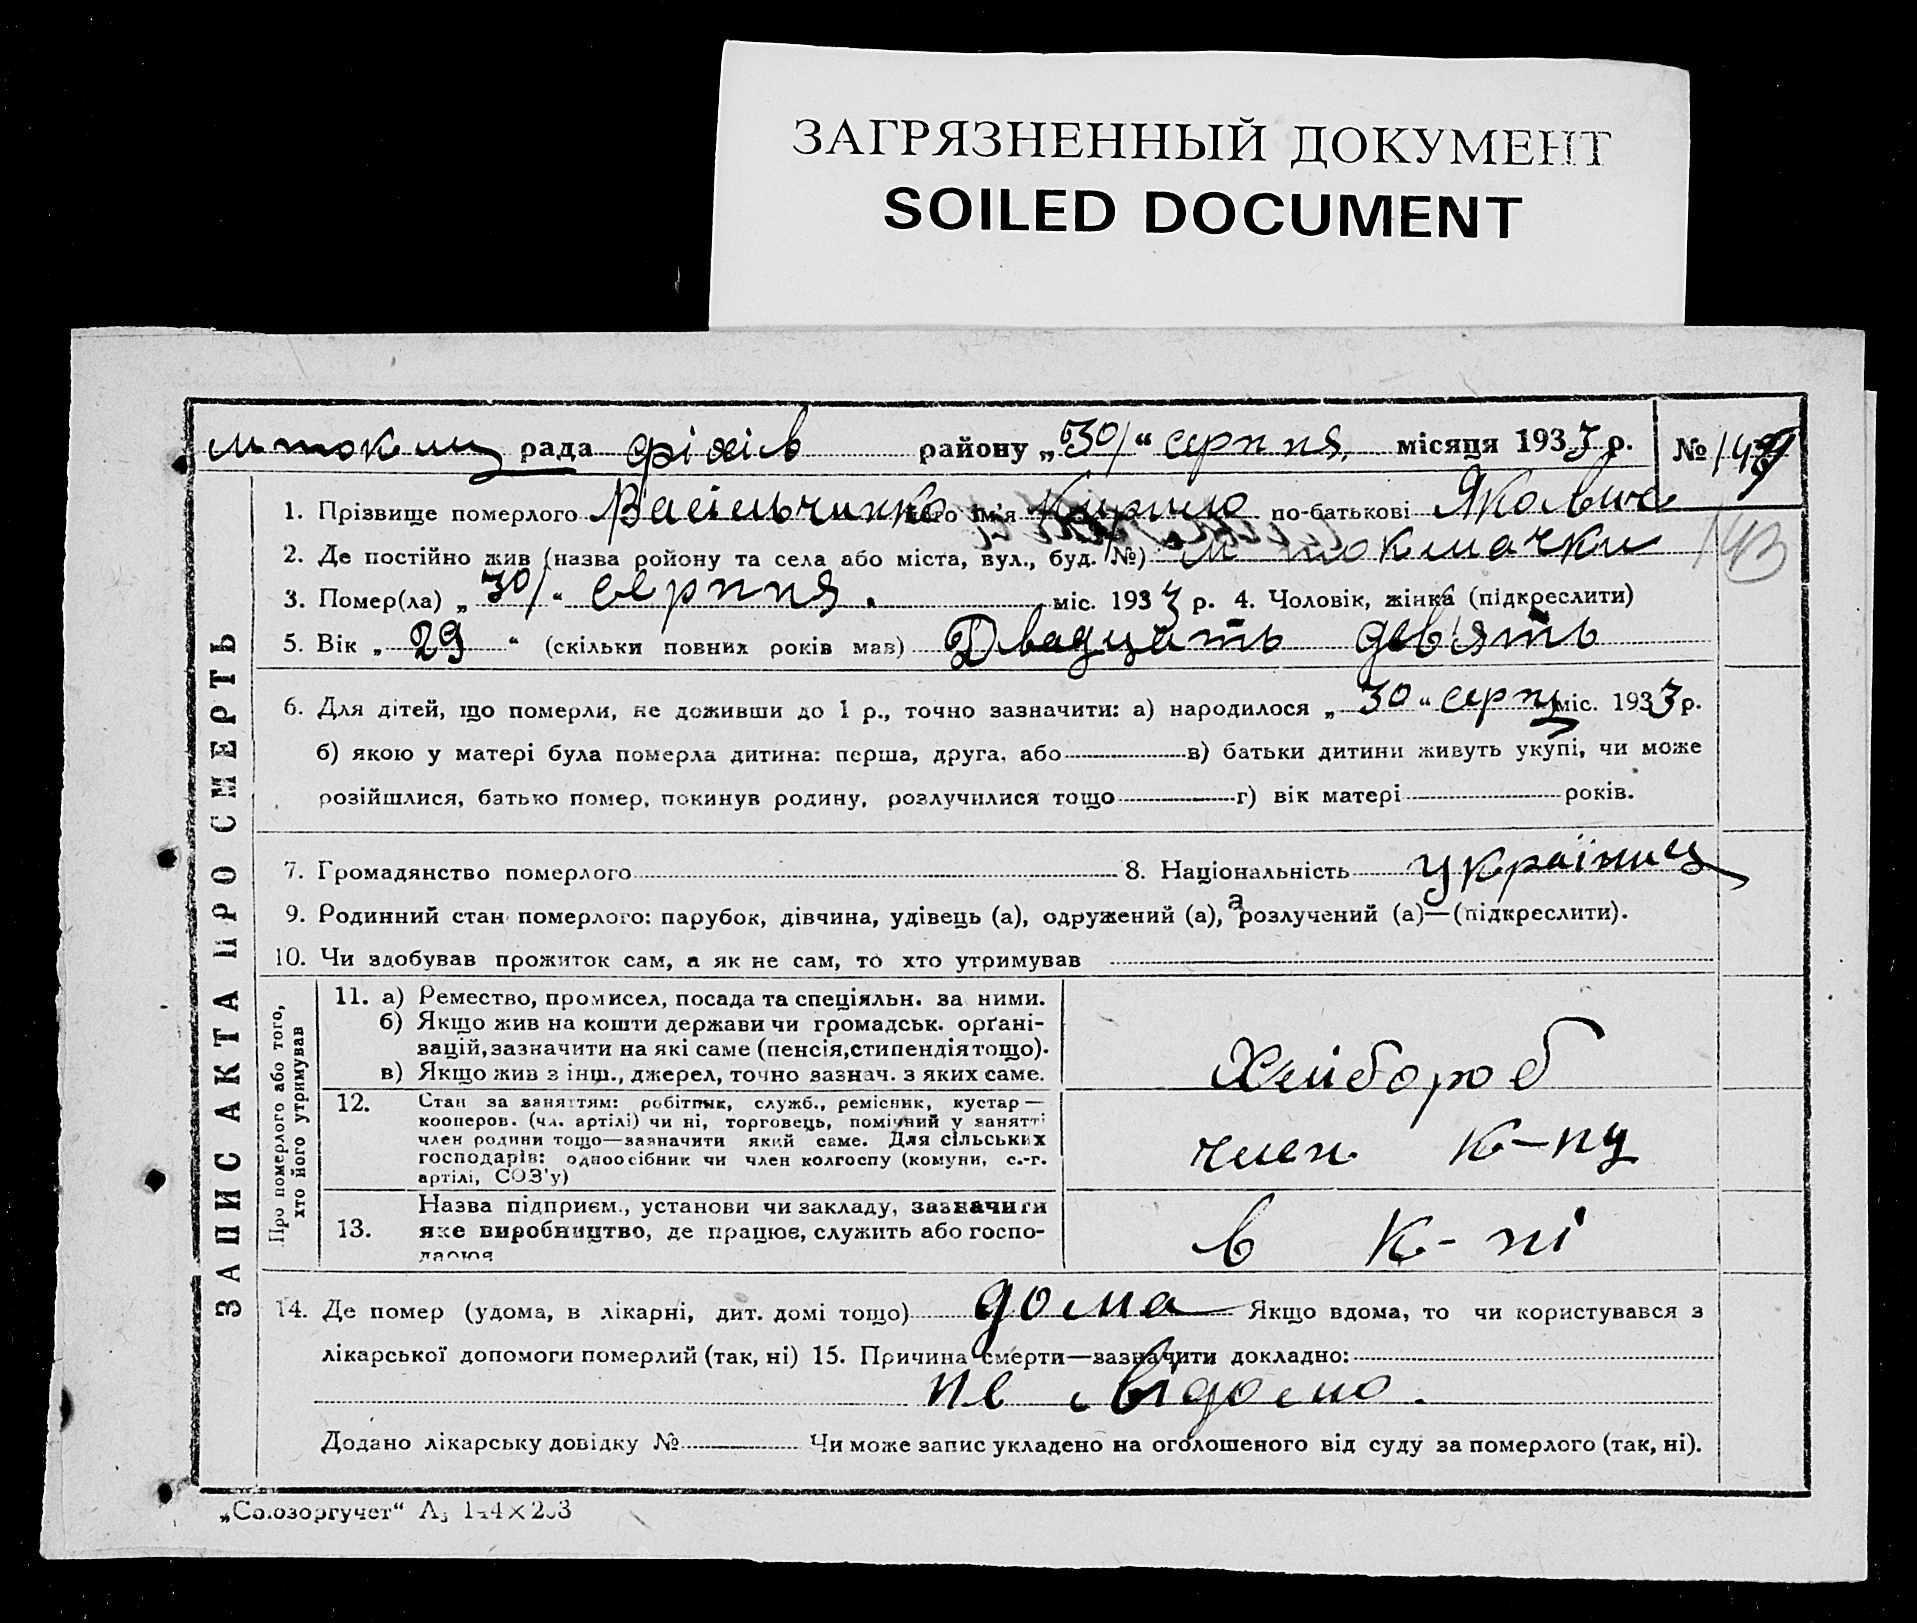 ЗАГРЯЗНЕННЫЙ ДОКУМЕНТ
SOILED DOCUMENT
рада району „30/“ серпня, місяця 1933 р. №
1. Прізвище померлого Васільчинко його ім'я Кирило по-батькові Якович
2. Де постійно жив (назва ройону та села або міста, вул., буд. №) м токмачки
143
3. Помер(ла) „30/“ серпня. міс. 1933 р. 4. Чоловік, жінка (підкреслити)
5. Вік „29“ (скільки повних років мав) Двадцать девять
6. Для дітей, що померли, не доживши до 1 р., точно зазначити: а) народилося „30“ серпн міс. 1933 р.
б) якою у матері була померла дитина: перша, друга, або в) батьки дитини живуть укупі, чи може
розійшлися, батько помер, покинув родину, розлучилися тощо г) вік матері років.
7. Громадянство померлого 8. Національність українец
9. Родинний стан померлого: парубок, дівчина, удівець (а), одружений (а), розлучений (а)—(підкреслити).
10. Чи здобував прожиток сам, а як не сам, то хто утримував
ЗАПИС АКТА ПРО СМЕРТЬ
Про померлого або того, хто його утримував
11. а) Ремество, промисел, посада та спеціяльн. за ними.
б) Якщо жив на кошти держави чи громадськ. орґані-
зацій, зазначити на які саме (пенсія, стипендія тощо).
в) Якщо жив з інш., джерел, точно зазнач. з яких саме.
Хлібороб
12. Стан за заняттям: робітник, служб., ремісник, кустар—
кооперов. (чл. артілі) чи ні, торговець, помічний у занятті
член родини тощо—зазначити який саме. Для сільських
господарів: одноосібник чи член колгоспу (комуни, с.-г.
артілі, СОЗ'у)
член к-пу
13. Назва підприєм., установи чи закладу, зазначити
яке виробництво, де працює, служить або госпо-
дарює
в к-пі
14. Де помер (удома, в лікарні, дит. домі тощо) дома Якщо вдома, то чи користувався з
лікарської допомоги померлий (так, ні) 15. Причина смерти—зазначити докладно:
не відомо.
Додано лікарську довідку № Чи може запис укладено на оголошеного від суду за померлого (так, ні).
„Союзоргучет“